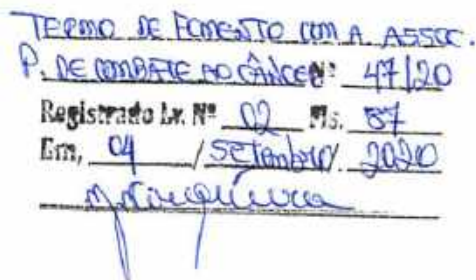 TERMO DE FOMENTO COM A ASSOC.
P. DE COMBATE AO CÂNCER Nº 47/20
Registrado Lv. Nº 02 Fls. 87
Em, 04 / Setembro / 2020